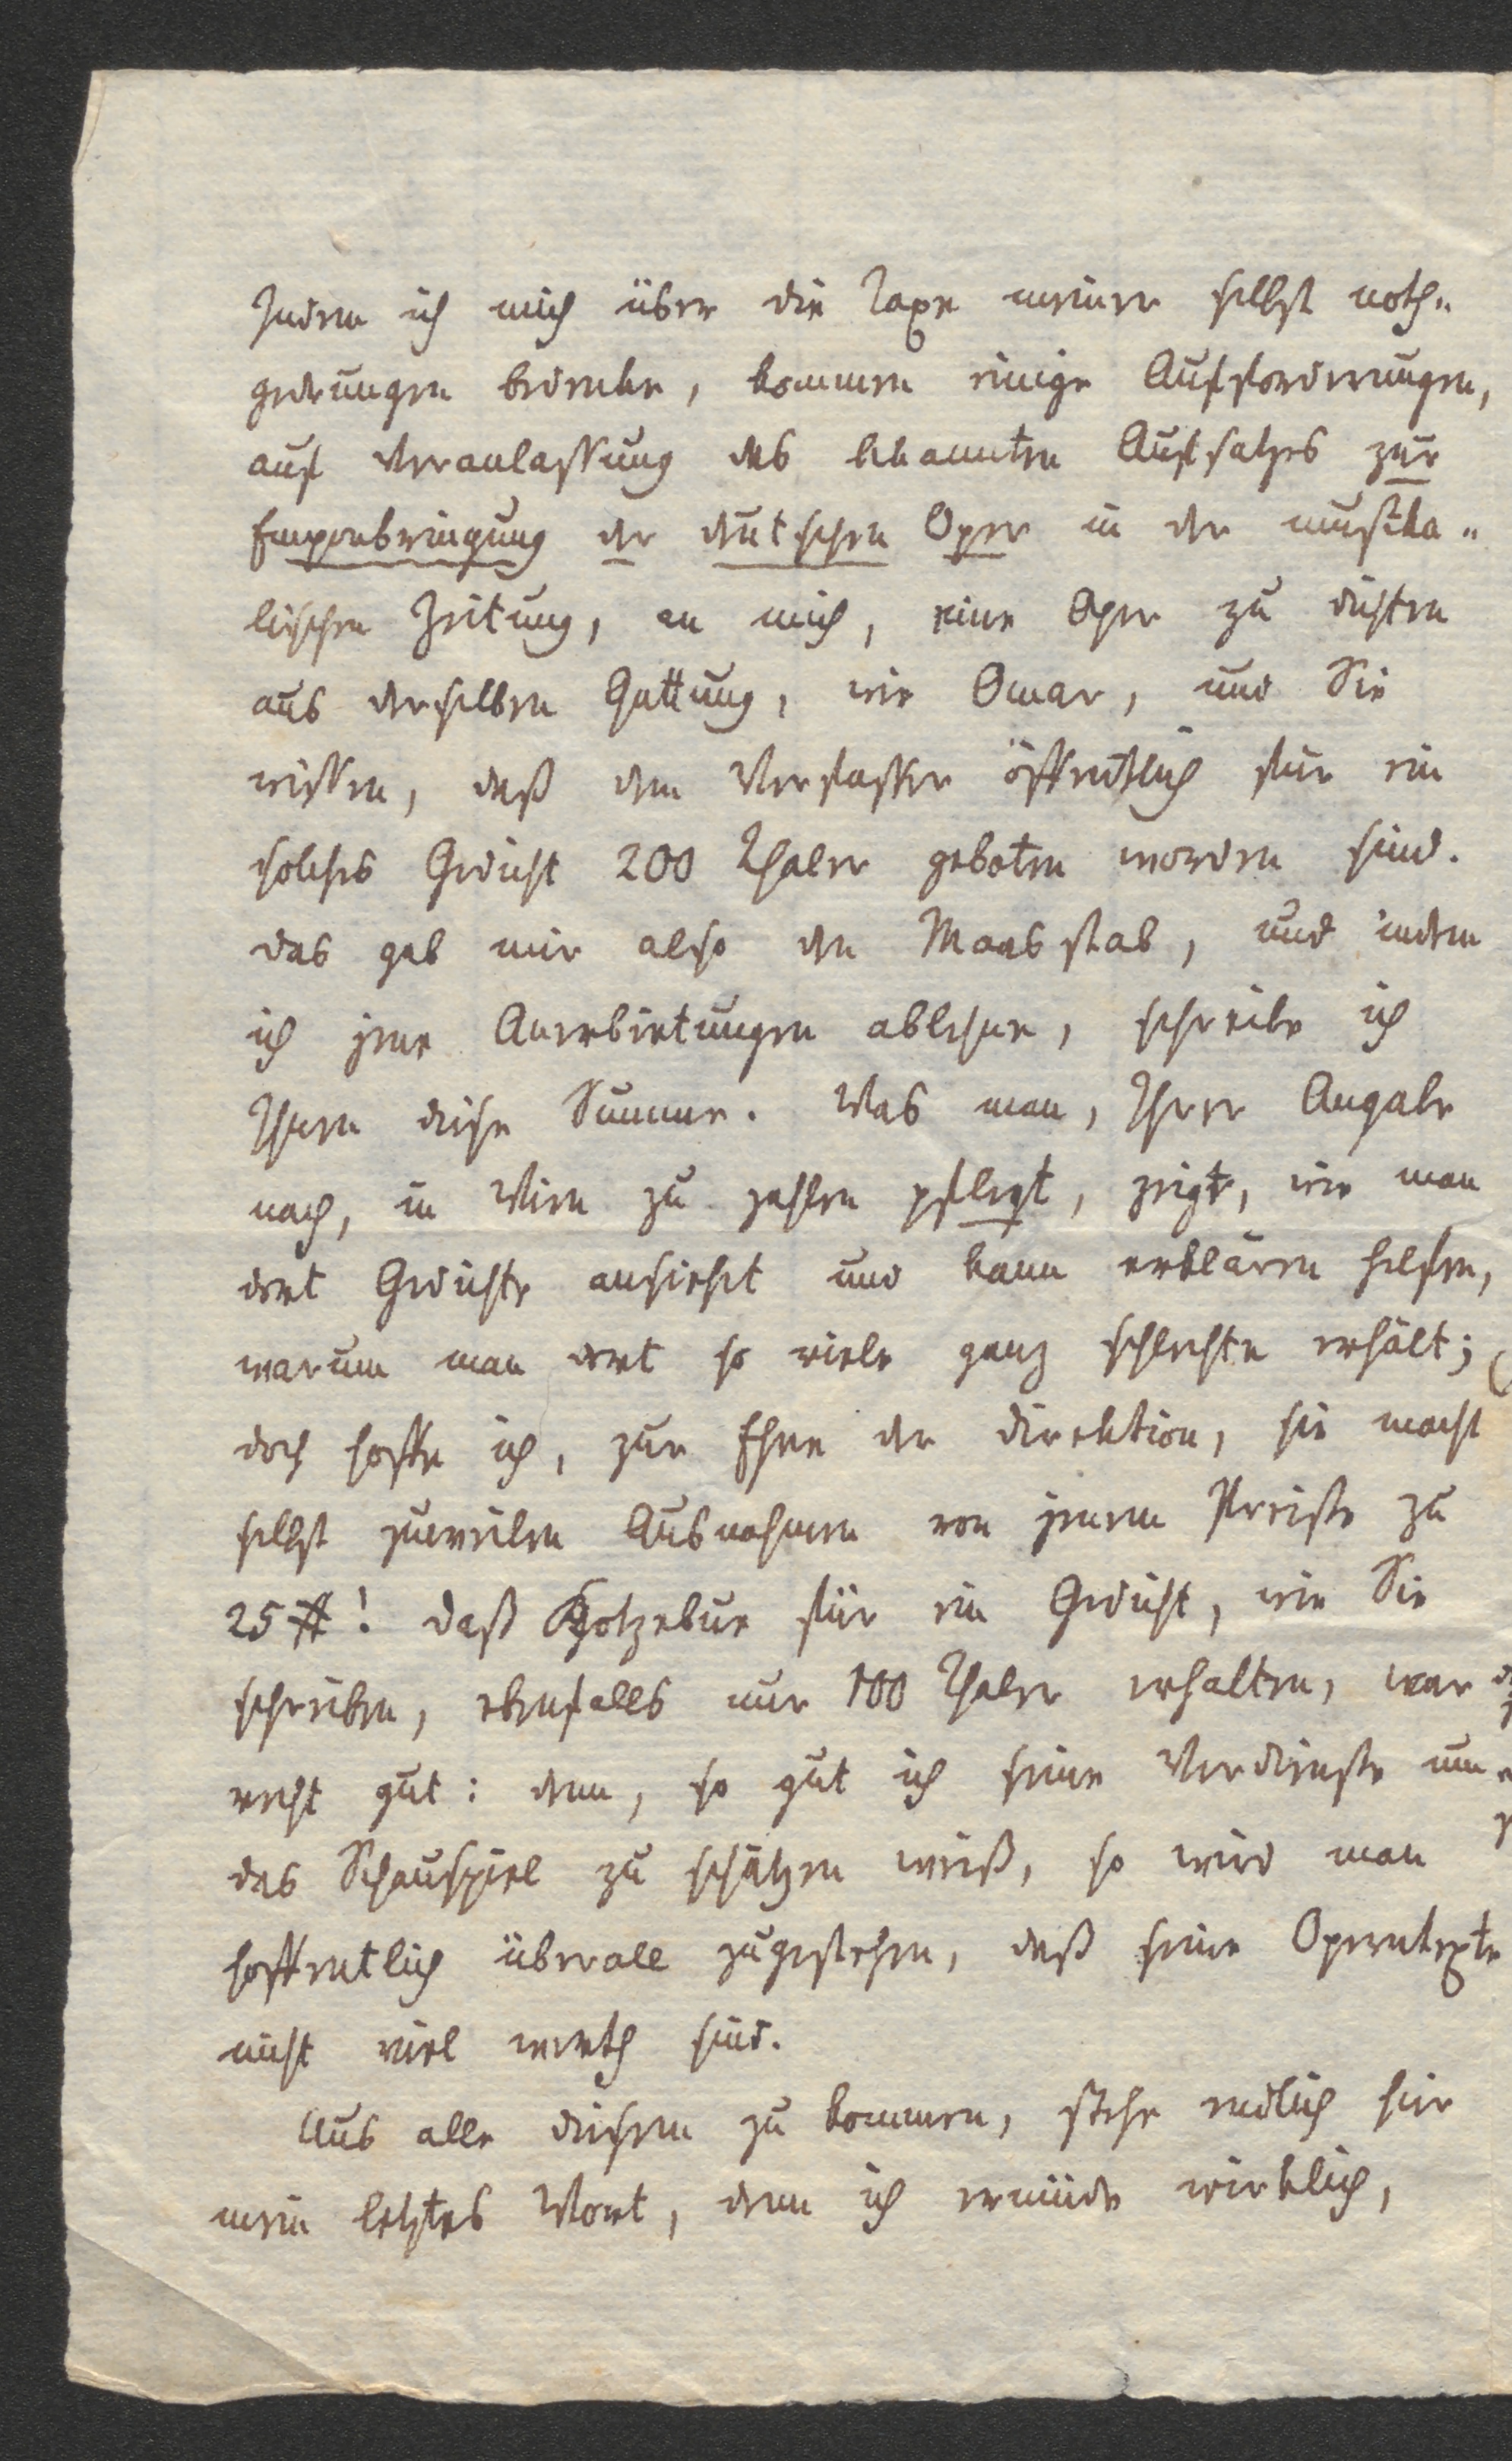 Indem ich mich über die Taxe meiner selbst noth„
gedrungen bedenke, kommen einige Aufforderungen,
auf Veranlassung des bekannten Aufsatzes zur
Emporbringung der deutschen Oper in der musika„
lischen Zeitung, an mich, eine Oper zu dichten
aus derselben Gattung, wie Omar, und Sie
wissen, daß dem Verfasser öffentlich für ein
solches Gedicht 200 Thaler geboten worden sind.
Das gab mir also den Maasstab, und indem
ich jene Anerbietungen ablehne, schreibe ich
Ihnen diese Summe. Was man, Ihrer Angabe
nach, in Wien zu zahlen pflegt, zeigt, wie man
dort Gedichte ansieht und kann erklären helfen,
warum man dort so viele ganz schlechte erhält;
doch hoffe ich, zur Ehre der Direktion, sie macht
selbst zuweilen Ausnahmen von jenem Preiße zu
25 #! Daß Kotzebue für ein Gedicht, wie Sie
schreiben, ebenfalls nur 100 Thaler erhalten, war
recht gut: denn, so gut ich seine Verdienste um
das Schauspiel zu schätzen weiß, so wird man
hoffentlich überall zugestehen, daß seine Operntexte
nicht viel werth sind.
Aus alle diesem zu kommen, stehe endlich hier
mein letztes Wort, denn ich ermüde wirklich,